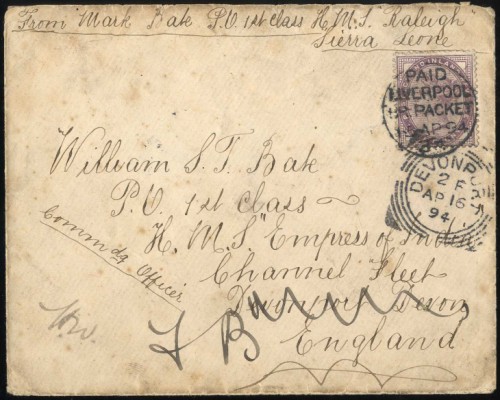 From Mark Bate P.O 1st class H.M.S. Raleigh
Sierra Leone
PAID
LIVERPOOL
BR PACKET
AP 94
DEVONPORT
2 F
AP 16
94
William S.T. Bate
P.O 1st class
H.M.S "Empress of India
Channel Fleet
Devonport Devon
England
Commdg Officer